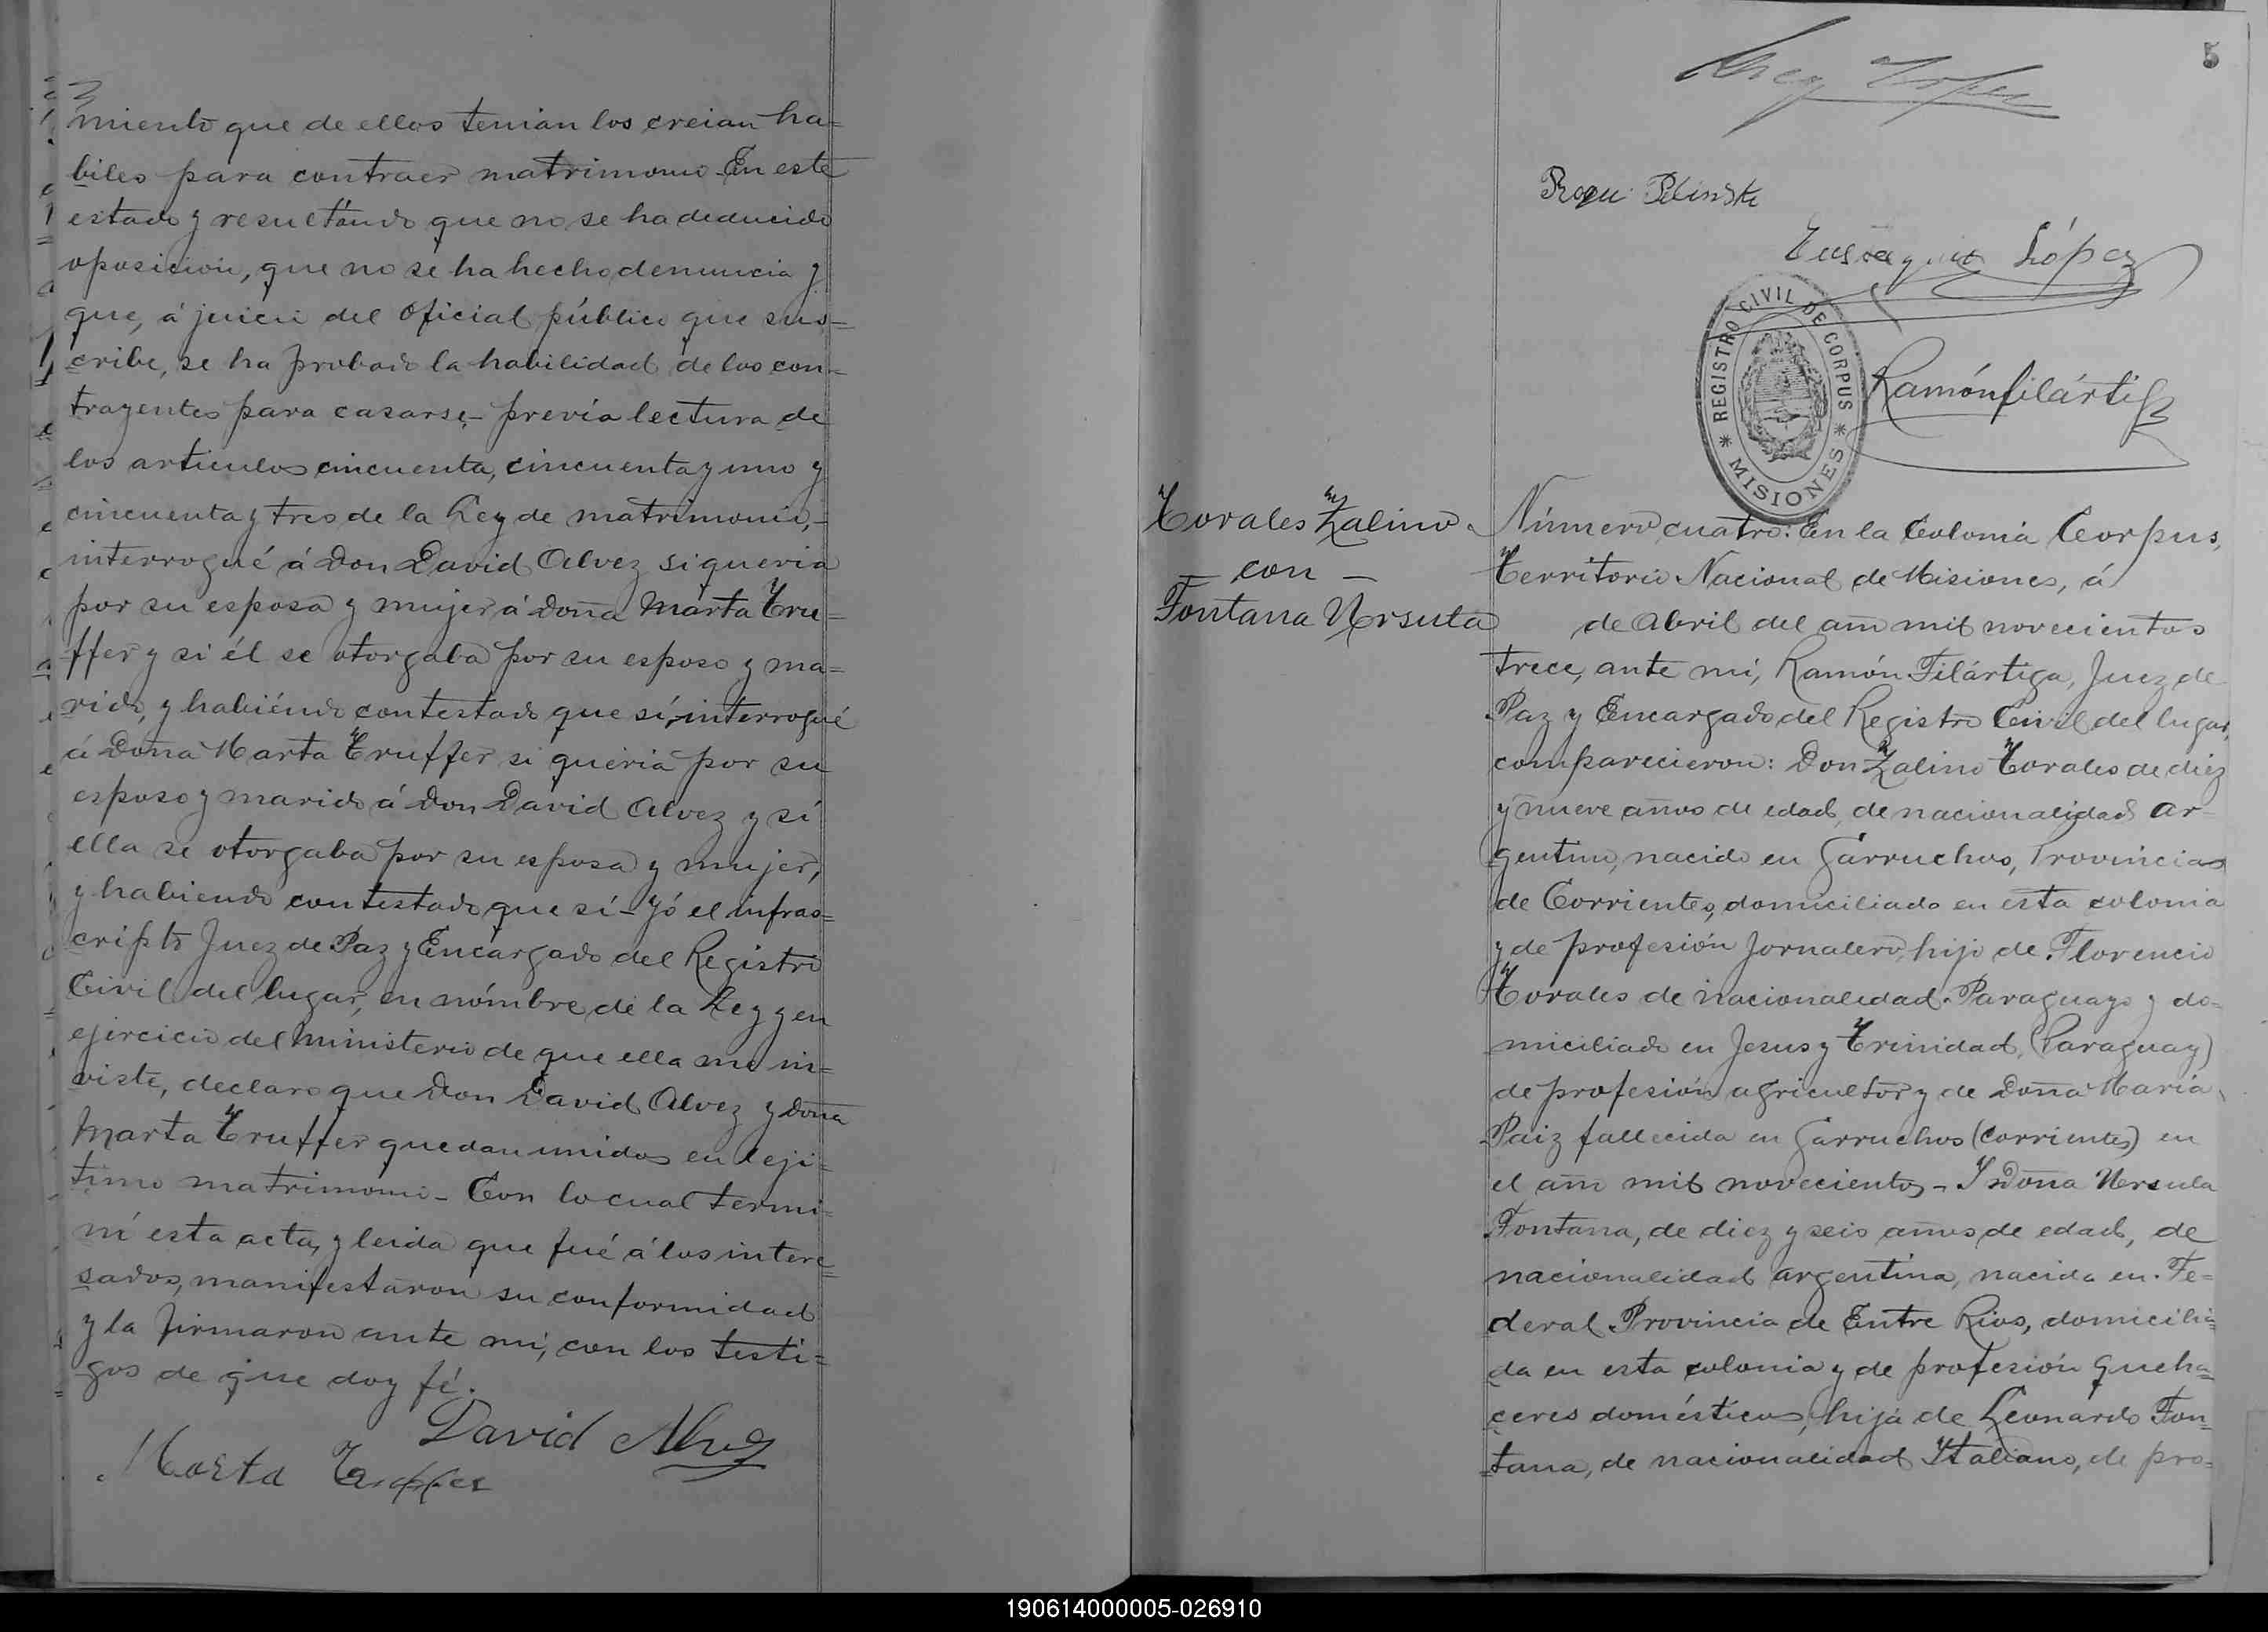 miento que de ellos tenian los creian ha=
biles para contraer matrimonio - En este
estado y resultándo que no se ha deducido
oposición, que no se ha hecho denuncia y
que, á juicio del oficial público que sus=
cribe, se ha probado la habilidad de los con=
trayentes para casarse,- previa lectura de
los articulos cincuenta, cincuenta y uno y
cincuenta y tres de la Ley de matrimonio,-
interrogué á Don David Alvez si queria
por su esposa y mujer á Doña Marta Tru=
ffer y si él se otorgaba por su esposo y ma=
rido, y habiéndo contestado que sí, interrogué
á Doña Marta Truffer si queria por su
esposo y marido á Don David Alvez y sí
ella se otorgaba por su esposa y mujer,
y habiendo contestado que sí - Yó el infras=
cripto Juez de Paz y Encargado del Registro
Civil del lugar, en nómbre de la Ley y en
ejercicio del ministerio de que ella me in=
viste, declaro que Don David Alvez y Doña
Marta Truffer quedan unidos en leji=
timo matrimonio - Con lo cual termi=
nó esta acta, y leida que fué á los intere=
sados, manifestaron su conformidad
y la firmaron ante mi, con los testi=
gos de que doy fé.
David Alvez
Marta Truffer
5
López
Eustaquio López
REGISTRO CIVIL DE CORPUS
* MISIONES *
Ramón Filártiga
Torales Zalino
- con -
Fontana Ursula
Número cuatro: En la Colonia Corpus,
Territorio Nacional de Misiones, á
de Abril del año mil novecientos
trece, ante mi, Ramón Filártiga, Juez de
Paz y Encargado del Registro Civil del lugar,
comparecieron: Don Zalino Torales de diez
y nueve años de edad, de nacionalidad ar-
gentino, nacido en Garruchos, Provincia
de Corrientes, domiciliado en esta colonia
y de profesión Jornalero, hijo de Florencio
Torales de nacionalidad Paraguayo y do-
miciliado en Jesus y Trinidad, (Paraguay)
de profesión agricultor y de Doña Maria
Paiz fallecida en Garruchos (Corrientes) en
el año mil novecientos - Y Doña Ursula
Fontana, de diez y seis años de edad, de
nacionalidad argentina, nacida en Fe=
deral Provincia de Entre Rios, domicilia=
da en esta colonia y de profesión queha=
ceres domésticos, hija de Leonardo Fon=
tana, de nacionalidad Italiano, de pro=
190614000005-026910